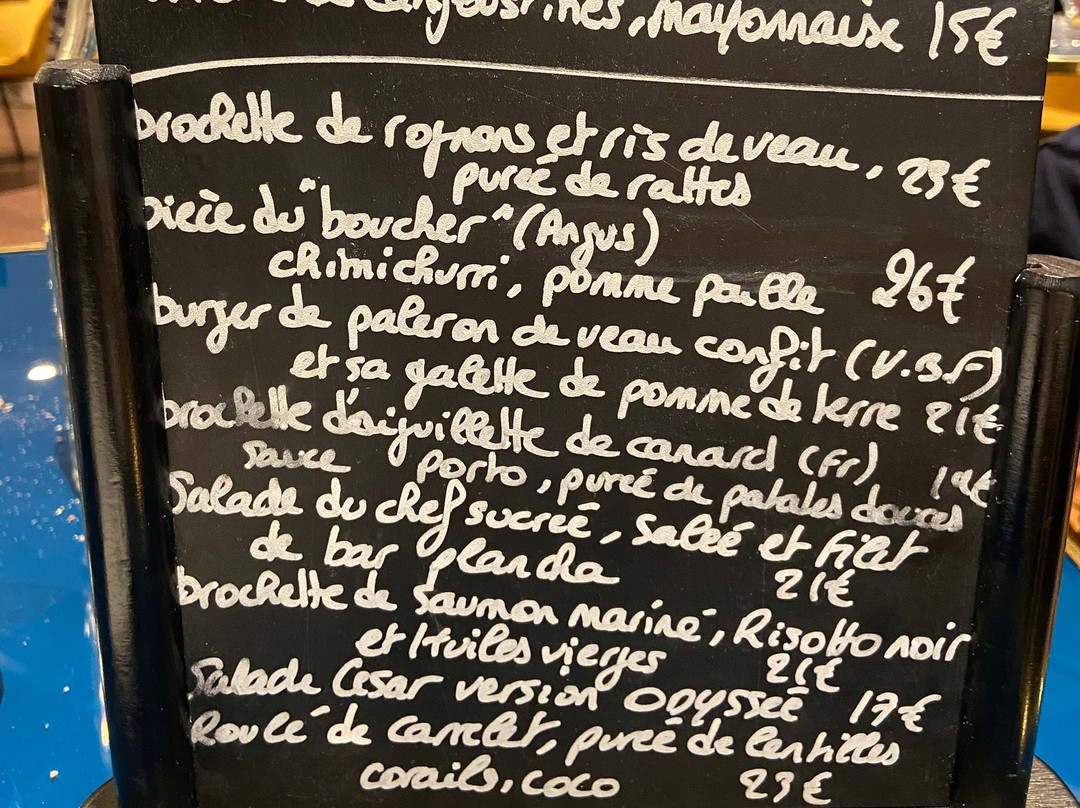 langoustines, mayonnaise 15€
brochette de rognons et ris de veau, 23€
purée de rattes
pièce du "boucher" (Angus)
chimichurri, pomme paille 26€
burger de paleron de veau confit (V.B.F)
et sa galette de pomme de terre 21€
brochette d'aiguillette de canard (Fr)
sauce porto, purée de patates douces 19€
Salade du chef sucrée, salée et filet
de bar plancha 21€
brochette de saumon mariné, Risotto noir
et Huiles vierges 21€
Salade César version Odyssée 17€
Roulé de carrelet, purée de lentilles
corails, coco 23€